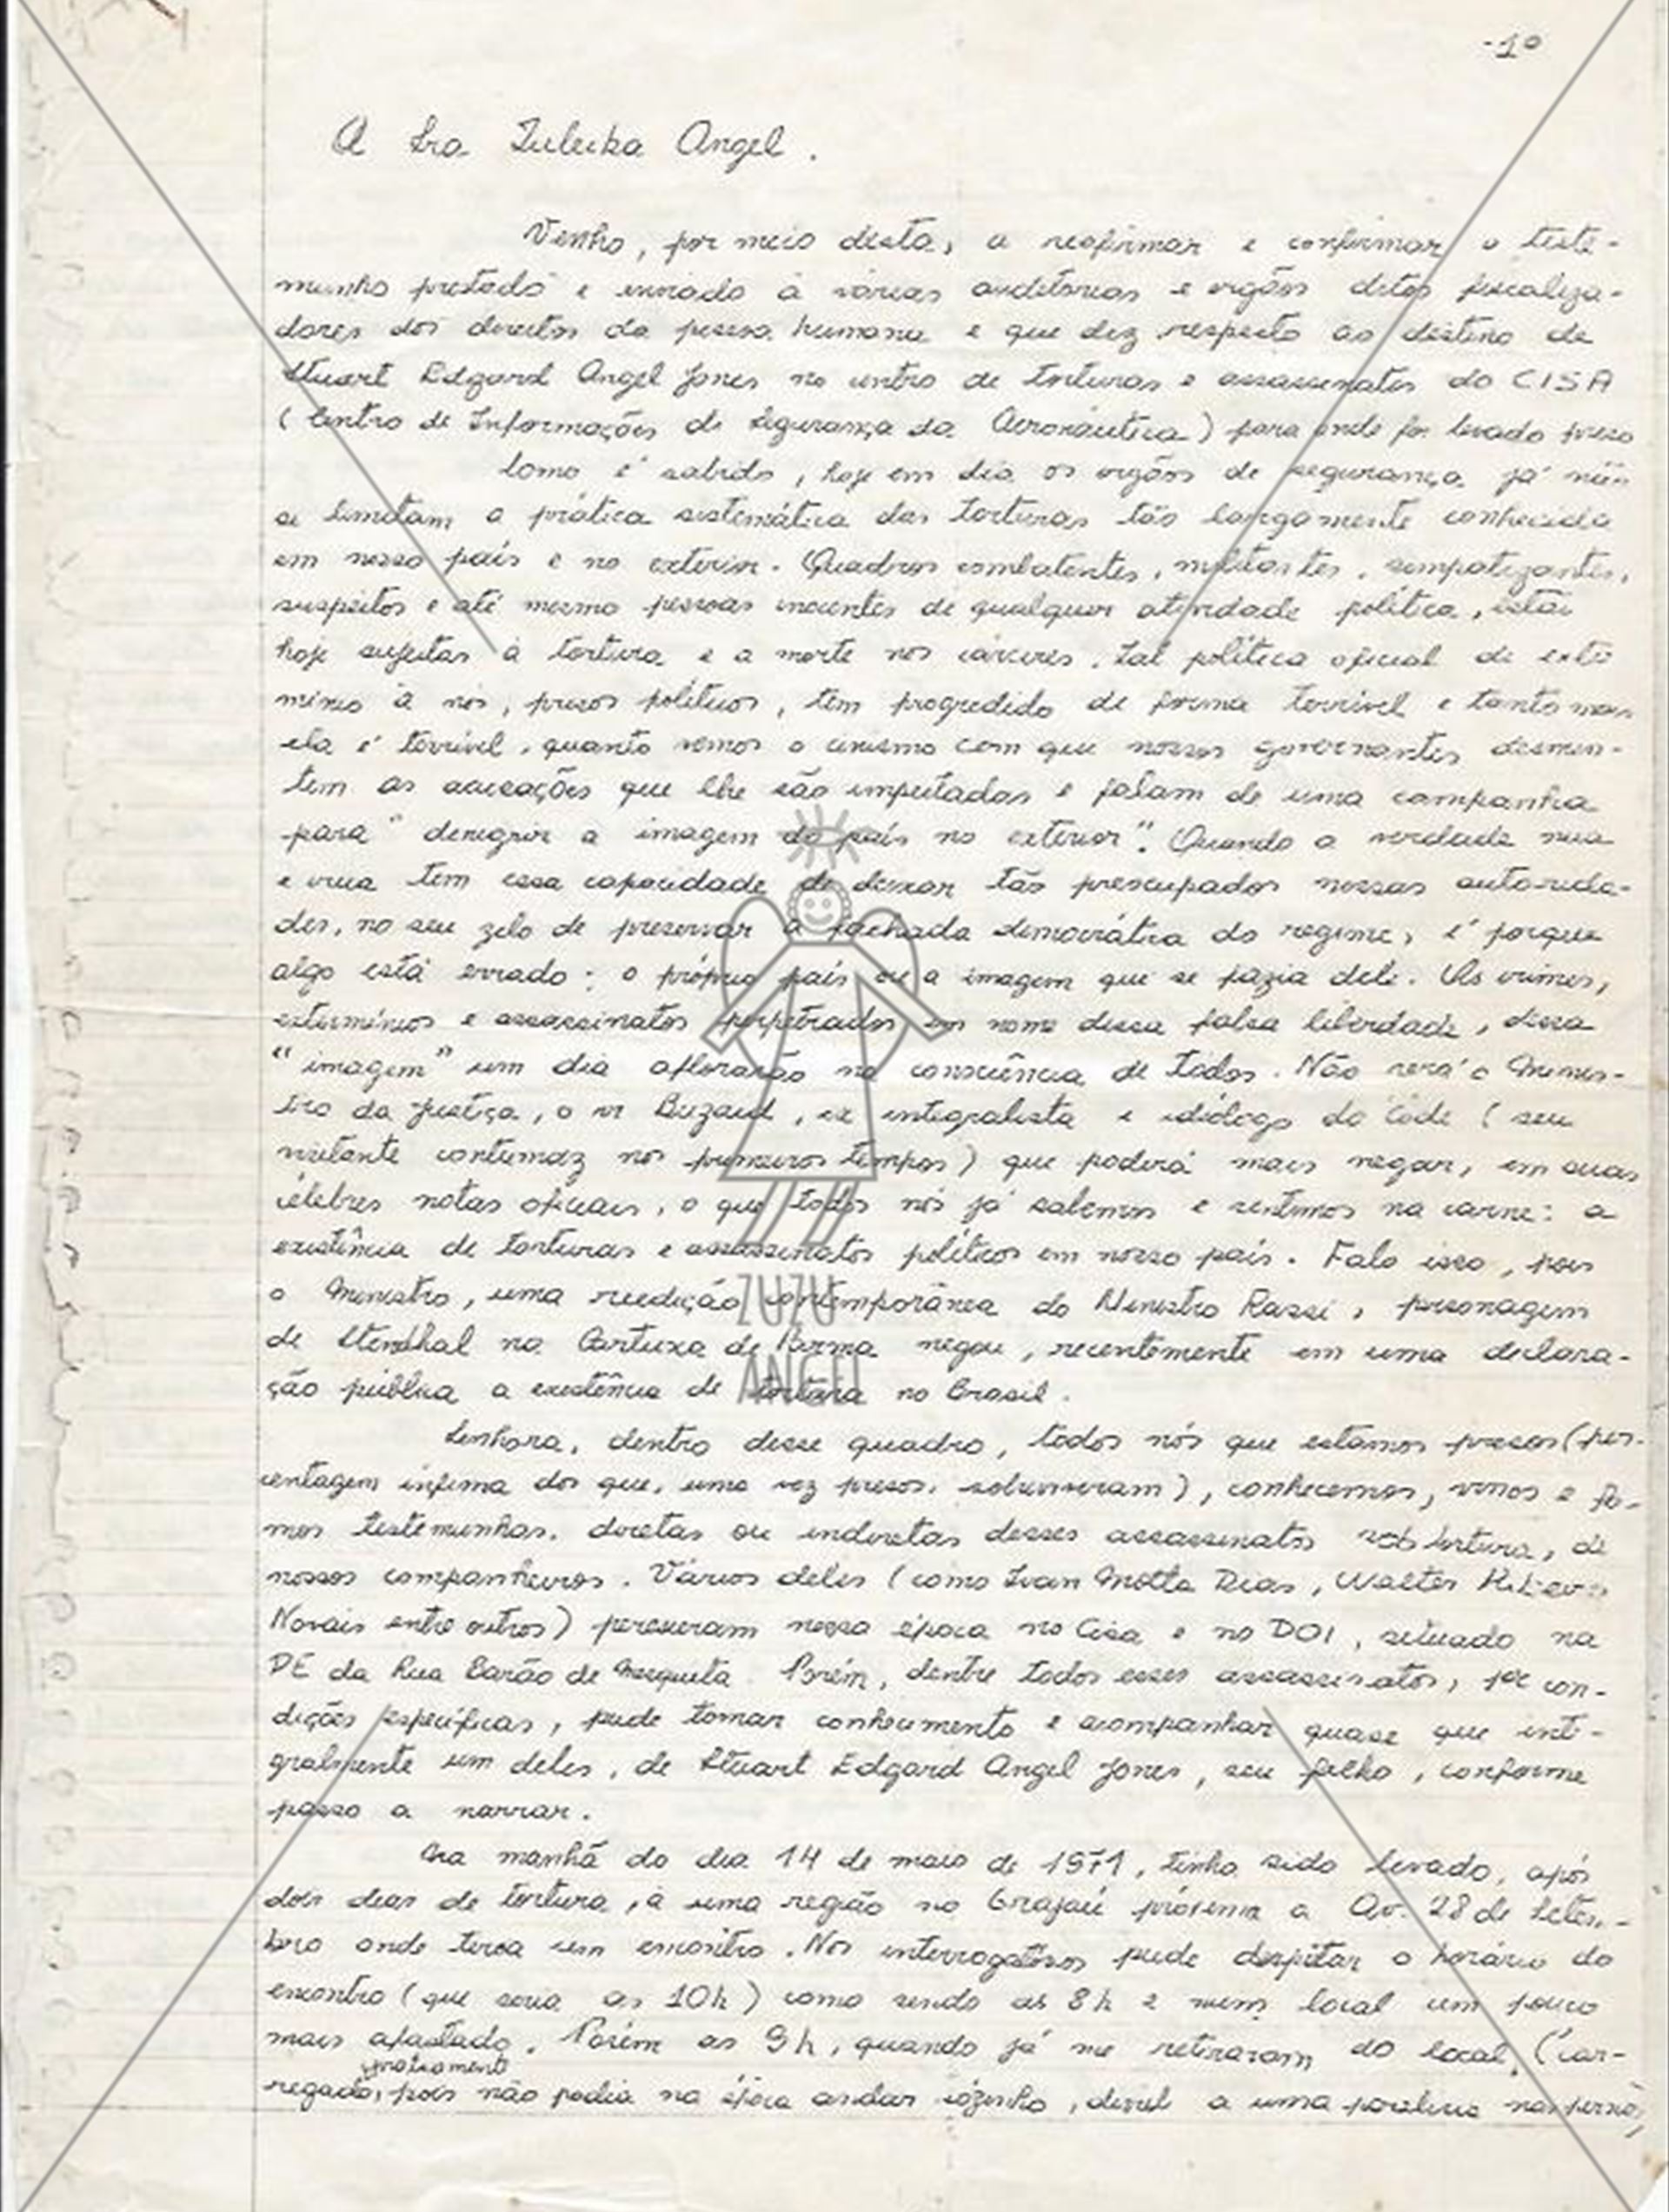 -1º
A Sra Zuleika Angel.
Venho, por meio desta, a reafirmar e confirmar o teste-
munho prestado e enviado à várias auditorias e orgãos ditos fiscaliza-
dores dos direitos da pessoa humana e que diz respeito ao destino de
Stuart Edgard Angel Jones no centro de torturas e assassinatos do CISA
(Centro de Informações de Segurança da Aeronáutica) para onde foi levado preso
Como é sabido, hoje em dia os orgãos de segurança já não
se limitam a prática sistemática das torturas tão largamente conhecida
em nosso país e no exterior. Quadros combatentes, militantes, simpatizantes,
suspeitos e até mesmo pessoas inocentes de qualquer atividade política, estão
hoje sujeitas à tortura e a morte nos cárceres. Tal política oficial de exter
mínio à nós, presos políticos, tem progredido de forma terrível e tanto mais
ela é terrível, quanto vemos o cinismo com que nossos governantes desmen-
tem as acusações que lhe são imputadas e falam de uma campanha
para "denegrir a imagem do país no exterior". Quando a verdade nua
e crua tem essa capacidade de deixar tão preocupados nossas autorida-
des, no seu zelo de preservar a fachada democrática do regime, é porque
algo está errado: o próprio país ou a imagem que se fazia dele. Os crimes,
extermínios e assassinatos perpetrados em nome dessa falsa liberdade, dessa
"imagem" um dia aflorarão na consciência de todos. Não será o Minis-
tro da Justiça, o sr Buzaid, ex integralista e ideólogo do Code (seu
visitante contumaz nos primeiros tempos) que poderá mais negar, em suas
célebres notas oficiais, o que todos nós já sabemos e sentimos na carne: a
existência de torturas e assassinatos políticos em nosso país. Falo isso, pois
o Ministro, uma reedição contemporânea do Ministro Rassi, personagem
de Stendhal na Cartuxa de Parma negou, recentemente em uma declara-
ção pública a existência de tortura no Brasil.
Senhora, dentro desse quadro, todos nós que estamos presos (por-
centagem ínfima dos que, uma vez presos, sobreviveram), conhecemos, vimos e fo-
mos testemunhas, diretas ou indiretas desses assassinatos sob tortura, de
nossos companheiros. Vários deles (como Ivan Motta Dias, Walter Ribeiro
Novais entre outros) pereceram nessa época no Cisa e no DOI, situado na
PE da Rua Barão de Mesquita. Porém, dentre todos esses assassinatos, por con-
dições específicas, pude tomar conhecimento e acompanhar quase que inte-
gralmente um deles, de Stuart Edgard Angel Jones, seu filho, conforme
passo a narrar.
Na manhã do dia 14 de maio de 1971, tinha sido levado, após
dois dias de tortura, à uma região no Grajaú próxima a Av. 28 de Setem-
bro onde teria um encontro. Nos interrogatórios pude despistar o horário do
encontro (que seria as 10h) como sendo as 8h e num local um pouco
mais afastado. Porém as 9h, quando já me retiraram do local, (car-
praticamente
regado, pois não podia na época andar sózinho, devido a uma paralisia nas pernas,
ZUZU
ANGEL